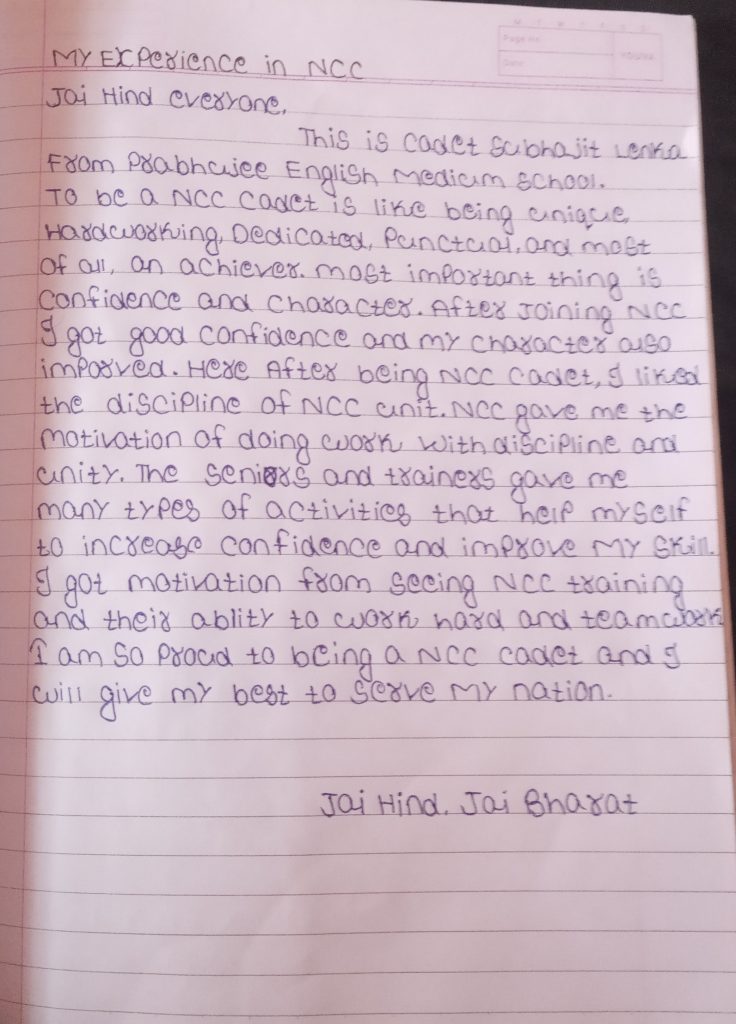 M T W T F S S
Page No.
Date:
YOUVA
MY EXPerience in NCC
Jai Hind everyone,
This is cadet Subhajit Lenka
From Prabhujee English Medium School.
To be a NCC cadet is like being unique,
Hardworking, Dedicated, Punctual, and most
of all, an achiever. most important thing is
Confidence and Character. After Joining NCC
I got good confidence and my character also
imporved. Here After being NCC cadet, I liked
the discipline of NCC unit. NCC gave me the
motivation of doing work with discipline and
unity. The seniors and trainers gave me
many types of activities that help myself
to increase confidence and improve my skill.
I got motivation from seeing NCC training
and their ablity to work hard and teamwork
I am so proud to being a NCC cadet and I
will give my best to serve my nation.
Jai Hind. Jai Bharat